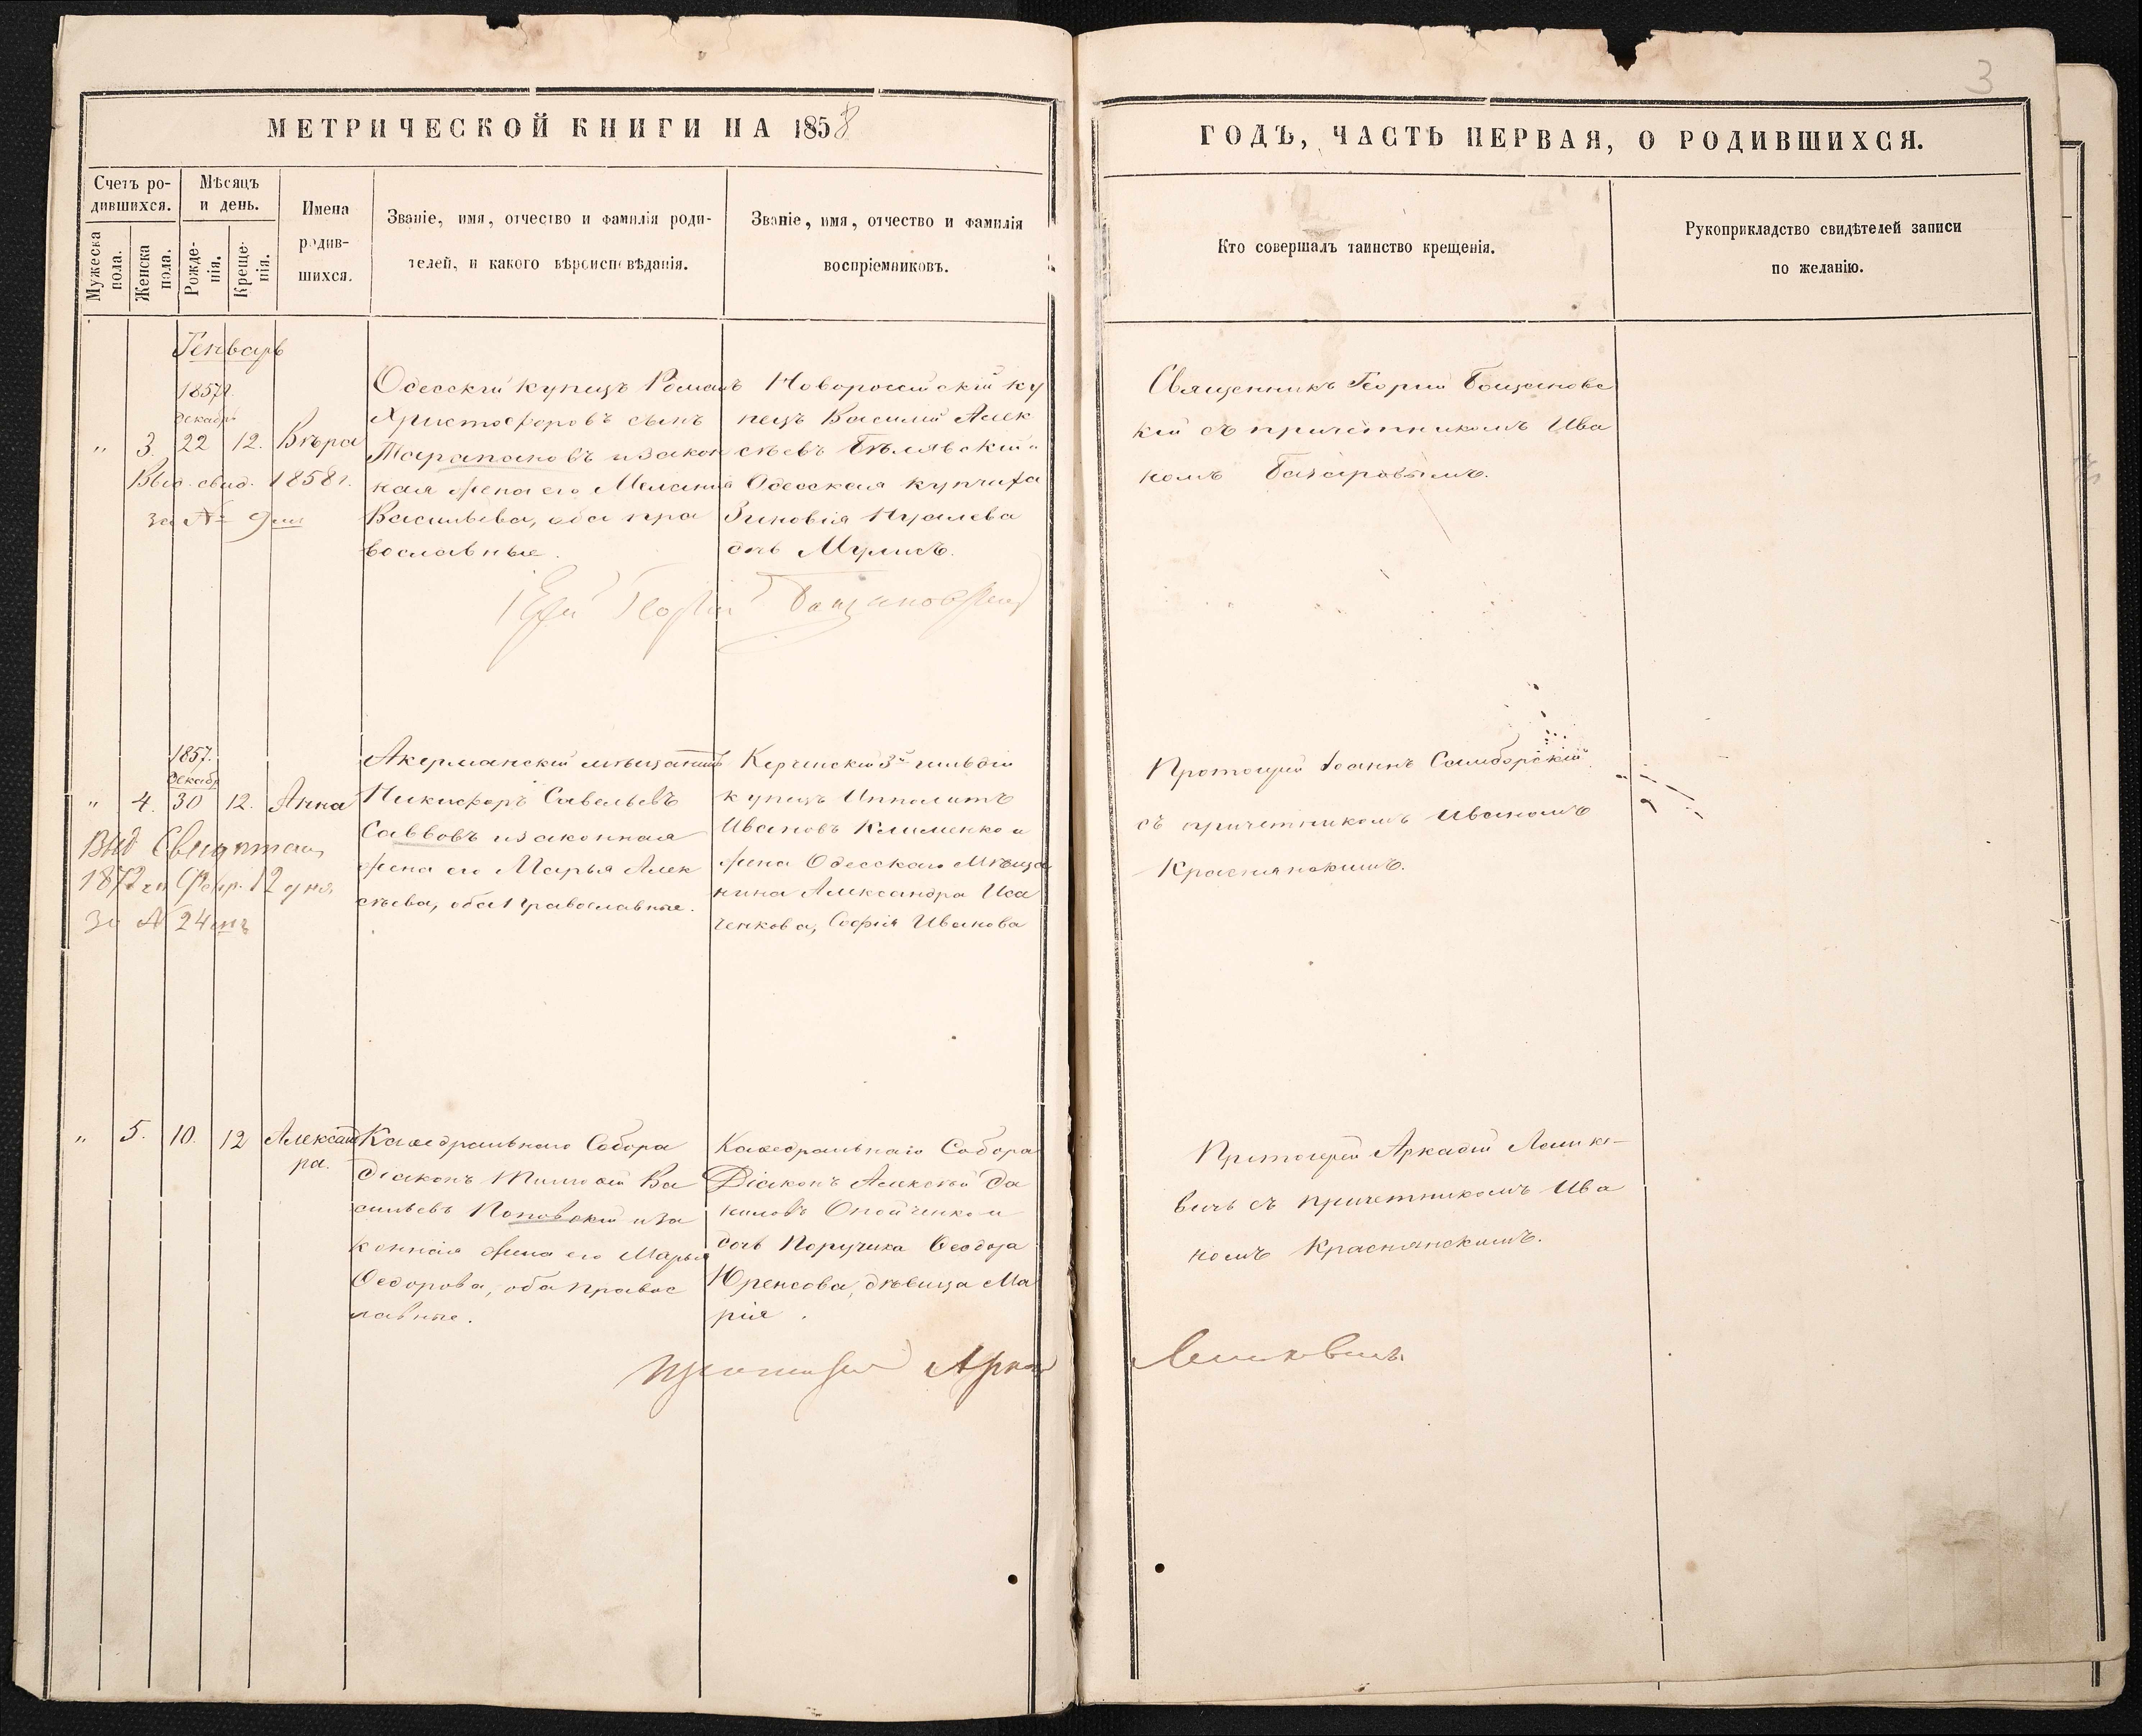 3
МЕТРИЧЕСКОЙ КНИГИ НА 1858
ГОДЪ, ЧАСТЬ ПЕРВАЯ, О РОДИВШИХСЯ.
Счетъ ро-
дившихся.
Мужеска
пола.
Женска
пола.
Мѣсяцъ
и день.
Рожде-
нія.
Креще-
нія.
Имена
родив-
шихся.
Званіе, имя, отчество и фамилія роди-
телей, и какого вѣроисповѣданія.
Званіе, имя, отчество и фамилія
воспріемниковъ.
Кто совершалъ таинство крещенія.
Рукоприкладство свидѣтелей записи
по желанію.
Генварь
1857г.
Декабр.
" 3. 22 12. Вѣра
Выд. свид. 1858г.
за №
Одесскій купецъ Романъ
Христофоровъ сынъ
законная жена его Меланія
Васильева, оба пра
вославные.
Новороссійскій ку
пецъ Василій Алек
сѣевъ Бѣлявскій и
Одесская купчиха
Зиновія
дочь
Іерей Георгій
Священникъ Георгій Бощановс
кій съ причетникомъ Ива
номъ Базаровымъ.
1857.
Декабр
" 4. 30 12. Анна
Выд Свидѣт
12 дня
За № 24мъ
Акерманскій мѣщанинъ
Никифоръ Савельевъ
Саввовъ и законная
жена его Марья Алек
сѣева, оба Православные.
Керчинскій 3й гильдіи
купецъ Ипполитъ
Ивановъ Клименко и
жена Одесскаго Мѣща
нина Александра Иса
ченкова, Софія Иванова
Протоіерей Іоаннъ Самборскій
съ причетникомъ Иваномъ
Краснянскимъ.
" 5. 10. 12 Александ
ра.
Каѳедральнаго Собора
Діаконъ Тимоѳей Ва
сильевъ Поповскій и за
конная жена его Марья
Ѳедорова, оба правос
лавные.
Каѳедральнаго Собора
Діаконъ Алексѣй Да
ниловъ и
дочь Поручика Ѳеодора
дѣвица Ма
рія.
Протоіерей Аркадій Лашке-
вичь съ причетникомъ Ива
номъ Краснянскимъ.
Протоіерей Аркад Лашкевичь